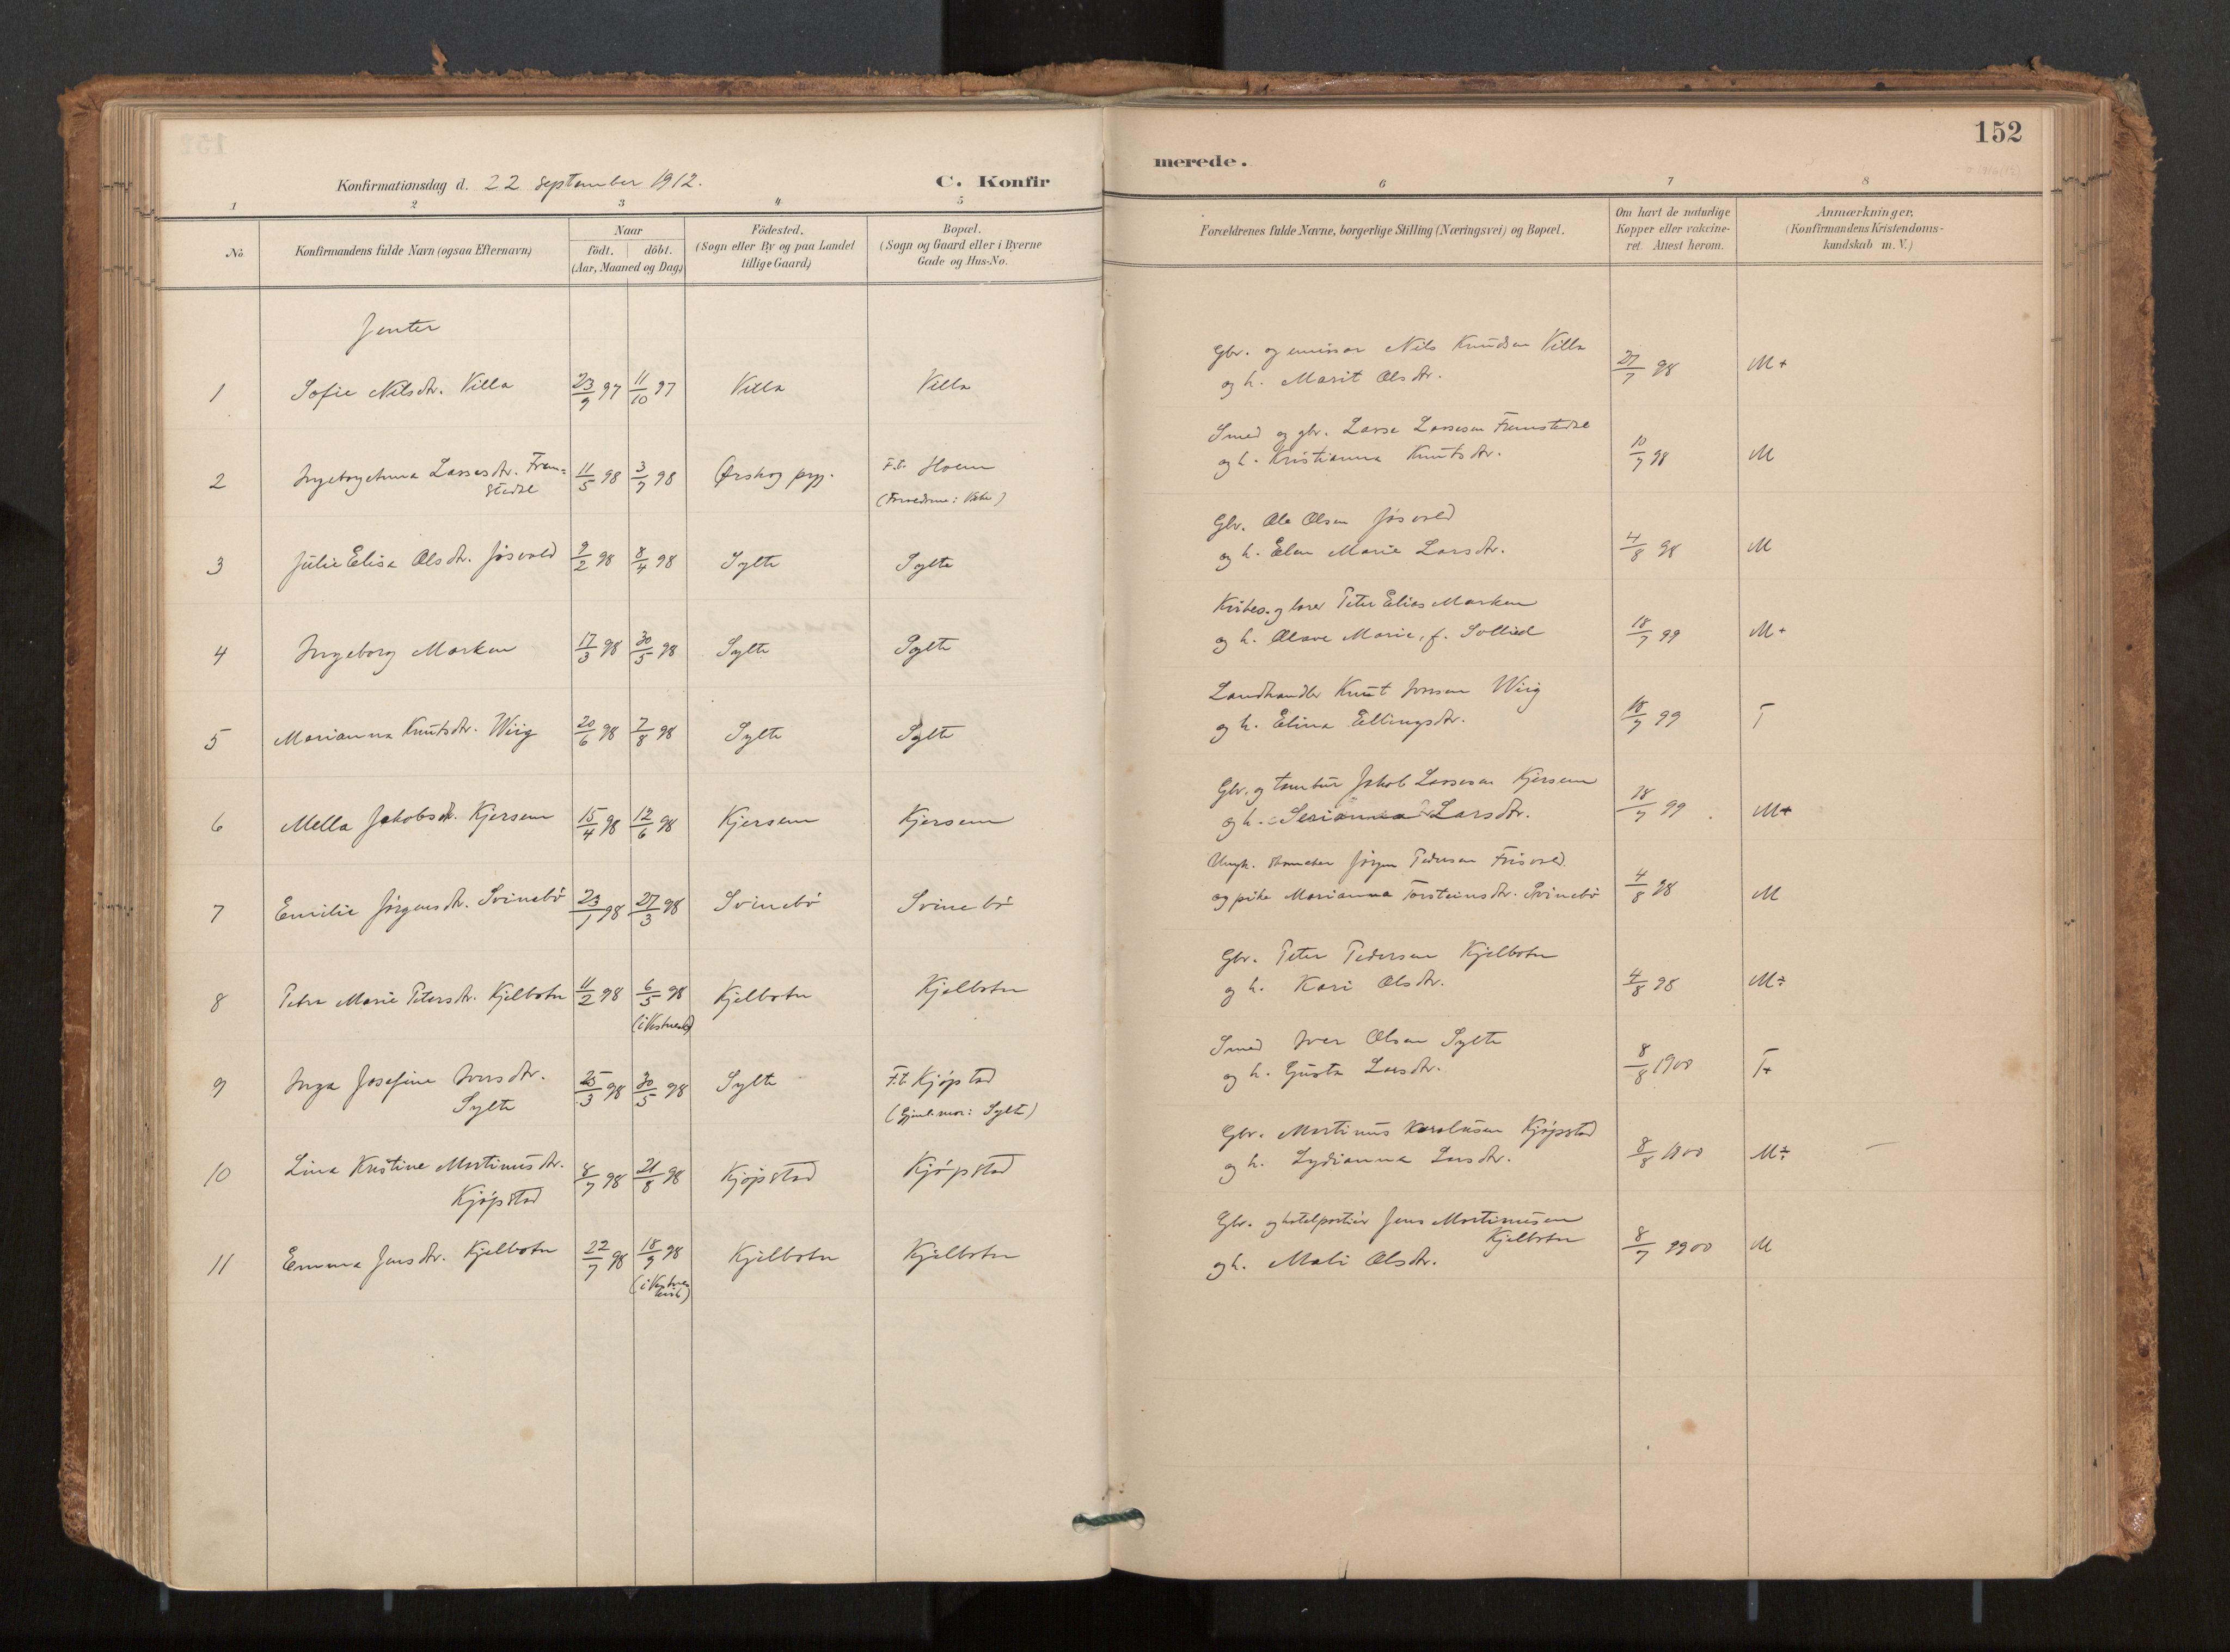 152
Konfirmationsdag d. 22 September 1912.
C. Konfir
merede.
1 2 3 4 5 6 7 8
No.
Konfirmandens fulde Navn (ogsaa Efternavn)
Naar
födt. döbt.
(Aar, Maaned og Dag)
Födested.
(Sogn eller By og paa Landet
tillige Gaard)
Bopæl.
(Sogn og Gaard eller i Byerne
Gade og Hus-No.
Forældrenes fulde Navne, borgerlige Stilling (Næringsvei) og Bopæl.
Om havt de naturlige
Kopper eller vakcine-
ret. Attest herom.
Anmærkninger,
(Konfirmandens Kristendoms-
kundskab m. V.)
Jenter
Gbr. og emissær Nils Knudsen Villa
1 Sofie Nilsdtr. Villa 23/9 97 11/10 97 Villa Villa og h. Marit Olsdtr. 27/7 98 M+
Smed og gbr. Lasse Lassesen Framstedse
2 Ingeborg Anna Lassesdtr. Fram= 11/5 98 3/7 98 Ørskog prg. F.t. Hoem og h. Kristianna Knutsdtr. 10/7 98 M
stedse
3 Julie Elisa Olsdtr. Jøsvold 9/2 98 8/4 98 Sylte Sylte Gbr. Ole Olsen Jøsvold
og h. Elen Marie Larsdtr. 4/8 98 M
Peter Elias Marken
4 Ingeborg Marken 17/3 98 30/5 98 Sylte Sylte og h. Olave Marie, f. Sollied 18/7 99 M+
Landhandler Knut Iversen Wiig
5 Marianna Knutsdtr. Wiig 20/6 98 7/8 98 Sylte Sylte og h. Elina Ellingsdtr. 18/7 99 T
Gbr. og tambur Jakob Lassesen Kjersem
6 Mella Jakobsdtr. Kjersem 15/4 98 12/6 98 Kjersem Kjersem og h. Serianna Larsdtr. 18/7 99 M+
Ungk. Jørgen Pedersen Frisvold
7 Emilie Jørgensdtr. Svinebø 23/1 98 27/3 98 Svinebø Svinebø og pike Marianna Torsteinsdtr. Svinebø 4/8 98 M
Gbr. Peter Pedersen Kjelbotn
8 Petra Marie Petersdtr. Kjelbotn 11/2 98 6/5 98 Kjelbotn Kjelbotn og h. Kari Olsdtr. 4/8 98 M÷
Smed Iver Olsen Sylte
9 Inga Josefine Iversdtr. 25/3 98 30/5 98 Sylte F.t. Kjøpstad og h. Gusta Larsdtr. 8/8 1900 T+
Sylte
Gbr. Martinus Karolusen Kjøpstad
10 Lina Kristine Martinusdtr. 8/7 98 21/8 98 Kjøpstad Kjøpstad og h. Lydianna Larsdtr. 8/8 1900 M÷
Kjøpstad
Gbr. og hotelportier Jens Martinusen
Kjelbotn
11 Emma Jensdtr. Kjelbotn 22/7 98 18/9 98 Kjelbotn Kjelbotn og h. Mali Olsdtr. 8/7 M